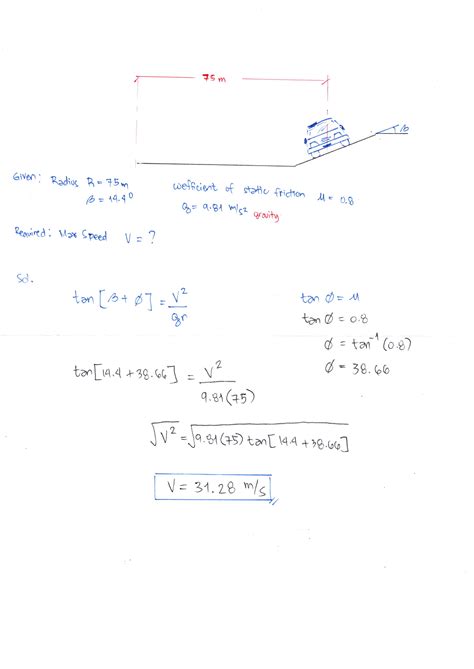 75 m
β
Given: Radius R = 75m
β = 14.4°
coefficient of static friction μ = 0.8
g = 9.81 m/s² gravity
Required: Max Speed V = ?
Sol.
tan [β + Ø] = V²/gr
tan Ø = μ
tan Ø = 0.8
Ø = tan⁻¹ (0.8)
Ø = 38.66
tan[14.4 + 38.66] = V²/9.81(75)
√V² = √9.81(75) tan[14.4 + 38.66]
V = 31.28 m/s